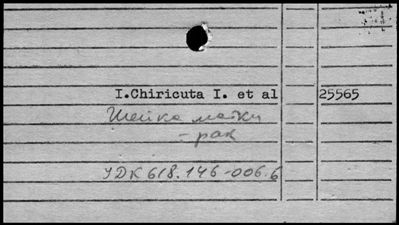 I.Chiricuta I. et al 25565
Шейка матки
- рак
УДК 618.146-006.6